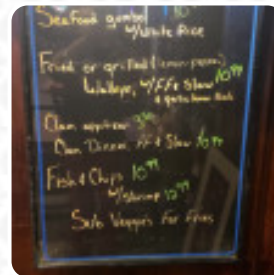 Seafood gumbo
w/White Rice
Fried or grilled (lemon pepper)
w/FF & Slaw 10.99
Clam
Clam Dinner, FF & Slaw 10.99
Fish & Chips 10.99
w/Shrimp 12.99
Sub Veggies For Fries